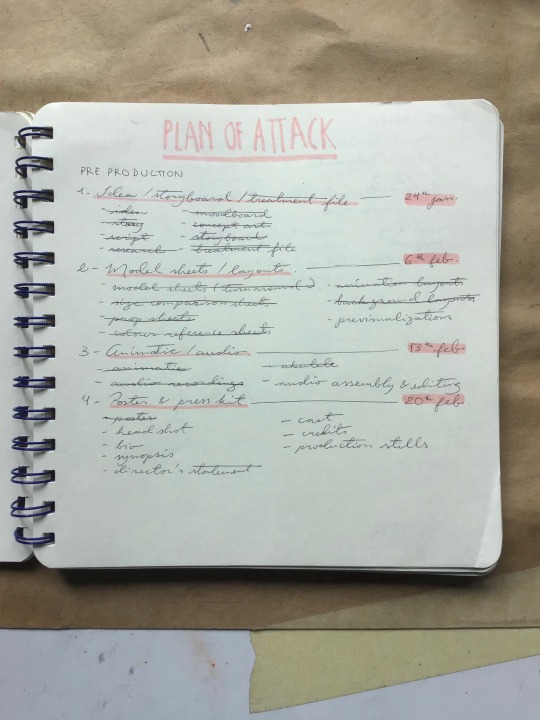 PLAN OF ATTACK
PRE PRODUCTION
1- Idea / storyboard / treatment file — 24th jan
- idea - moodboard
- story - concept art
- script - storyboard
- research - treatment file
2- Model sheets / layouts. — 6th feb.
- model sheets (turnaround) - animation layouts
- size comparison sheets - background layouts
- prop sheets - previsualization
- colour reference sheets
3 - Animatic / audio. — 13th feb.
- animatic - ukulele
- audio recordings - audio assembly & editing
4 - Poster & press kit — 20th feb.
- poster - cast
- head shot - credits
- bio - production stills
- synopsis
- director's statement